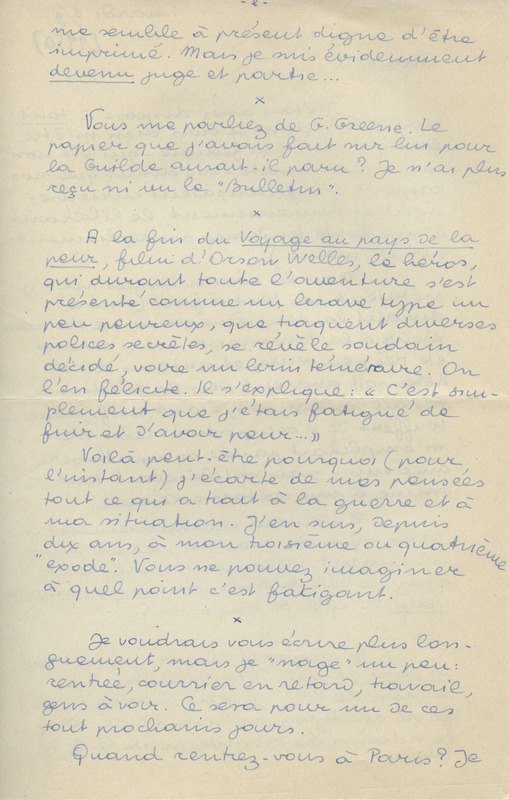 - 2 -
me semble à présent digne d'être
imprimé. Mais je suis évidemment
devenu juge et partie...
x
Vous me parliez de G. Greene. Le
papier que j'avais fait sur lui pour
la Guilde aurait-il paru ? Je n'ai plus
reçu ni vu le "Bulletin".
x
A la fin du Voyage au pays de la
peur, film d'Orson Welles, le héros,
qui durant toute l'aventure s'est
présenté comme un brave type un
peu peureux, que traquent diverses
polices secrètes, se révèle soudain
décidé, voire un brin téméraire. On
l'en félicite. Il s'explique : « C'est sim-
plement que j'étais fatigué de
fuir et d'avoir peur...»
Voilà peut-être pourquoi (pour
l'instant) j'écarte de mes pensées
tout ce qui a trait à la guerre et à
ma situation. J'en suis, depuis
dix ans, à mon troisième ou quatrième
"exode". Vous ne pouvez imaginer
à quel point c'est fatigant.
x
Je voudrais vous écrire plus lon-
guement, mais je "nage" un peu :
rentrée, courrier en retard, travail,
gens à voir. Ce sera pour un de ces
tout prochains jours.
Quand rentrez-vous à Paris ? Je